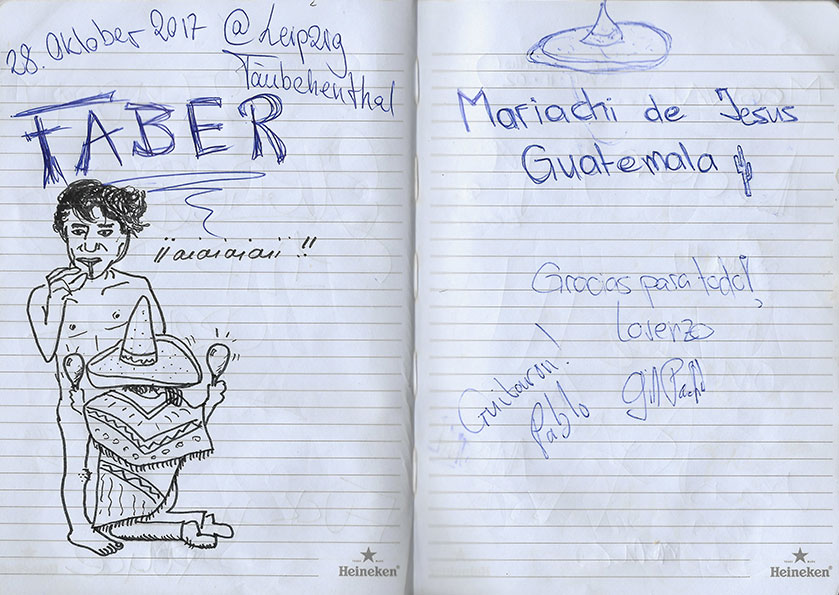 28. Oktober 2017 @ Leipzig
Täubchenthal
FABER
¡¡aiaiaiaii!!
Heineken®
Mariachi de Jesus
Guatemala
Gracias para todo!
Lorenzo
Guitaron!
Pablo
Heineken®